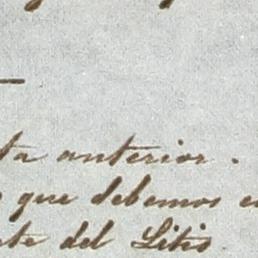 ta anterior.
que debemos
te del Litis